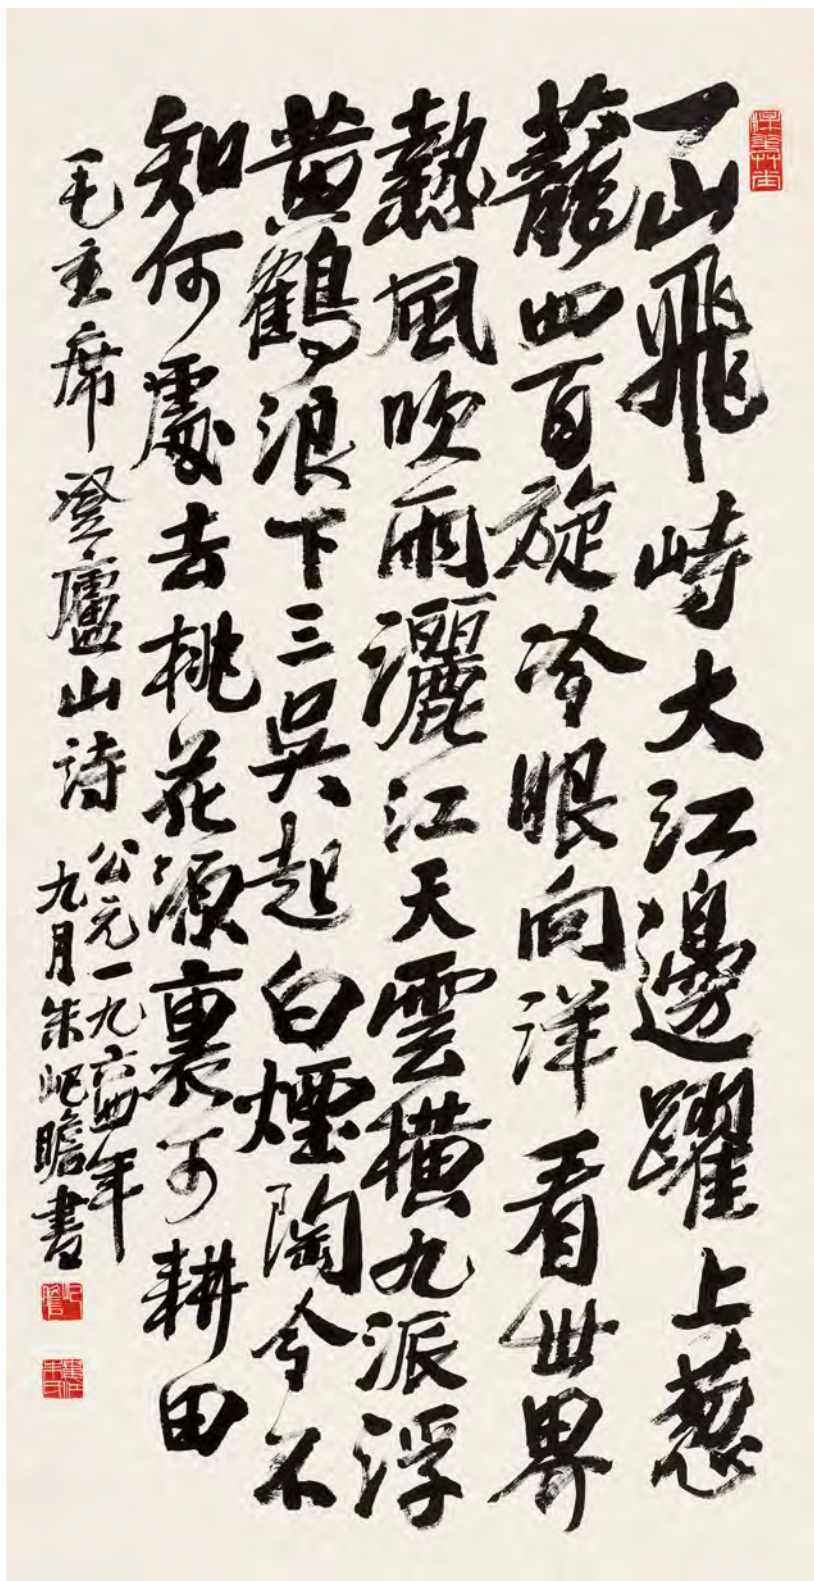 一山飛峙大江邊躍上葱
蘢四百旋冷眼向洋看世界
熱風吹雨灑江天雲橫九派浮
黄鶴浪下三吳起白煙陶令不
知何處去桃花源裏可耕田
毛主席登廬山詩
公元一九六四年
九月朱屺瞻書
屺瞻